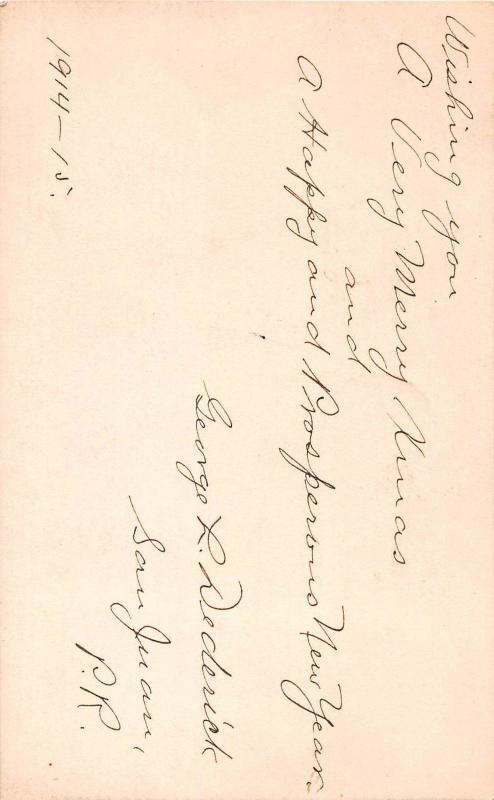 Wishing you
A Very Merry Xmas
and
A Happy and Prosperous New Year.
George L. Dederick
San Juan,
P.R.
1914-15.